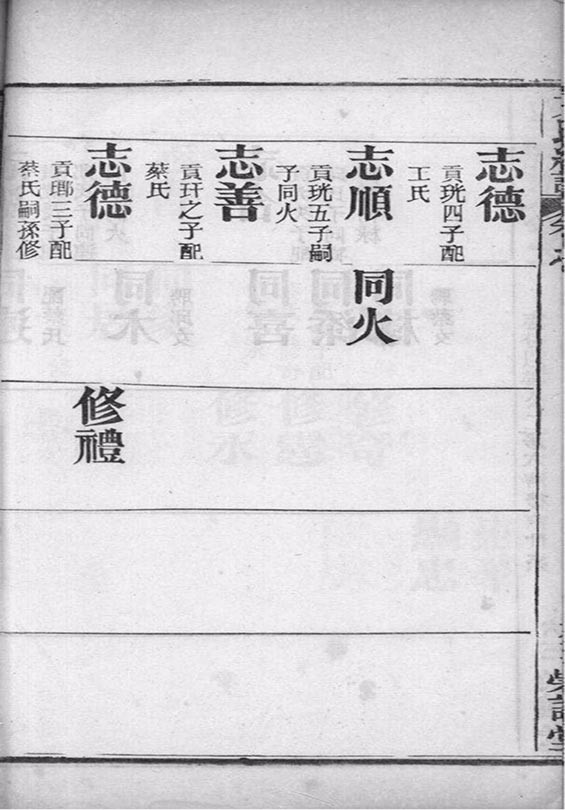 志德
貢珖四子配
王氏
志順
貢珖五子嗣
子同火
同火
志善
貢玕之子配
蔡氏
志德
貢瑯三子配
蔡氏嗣孫修
修禮